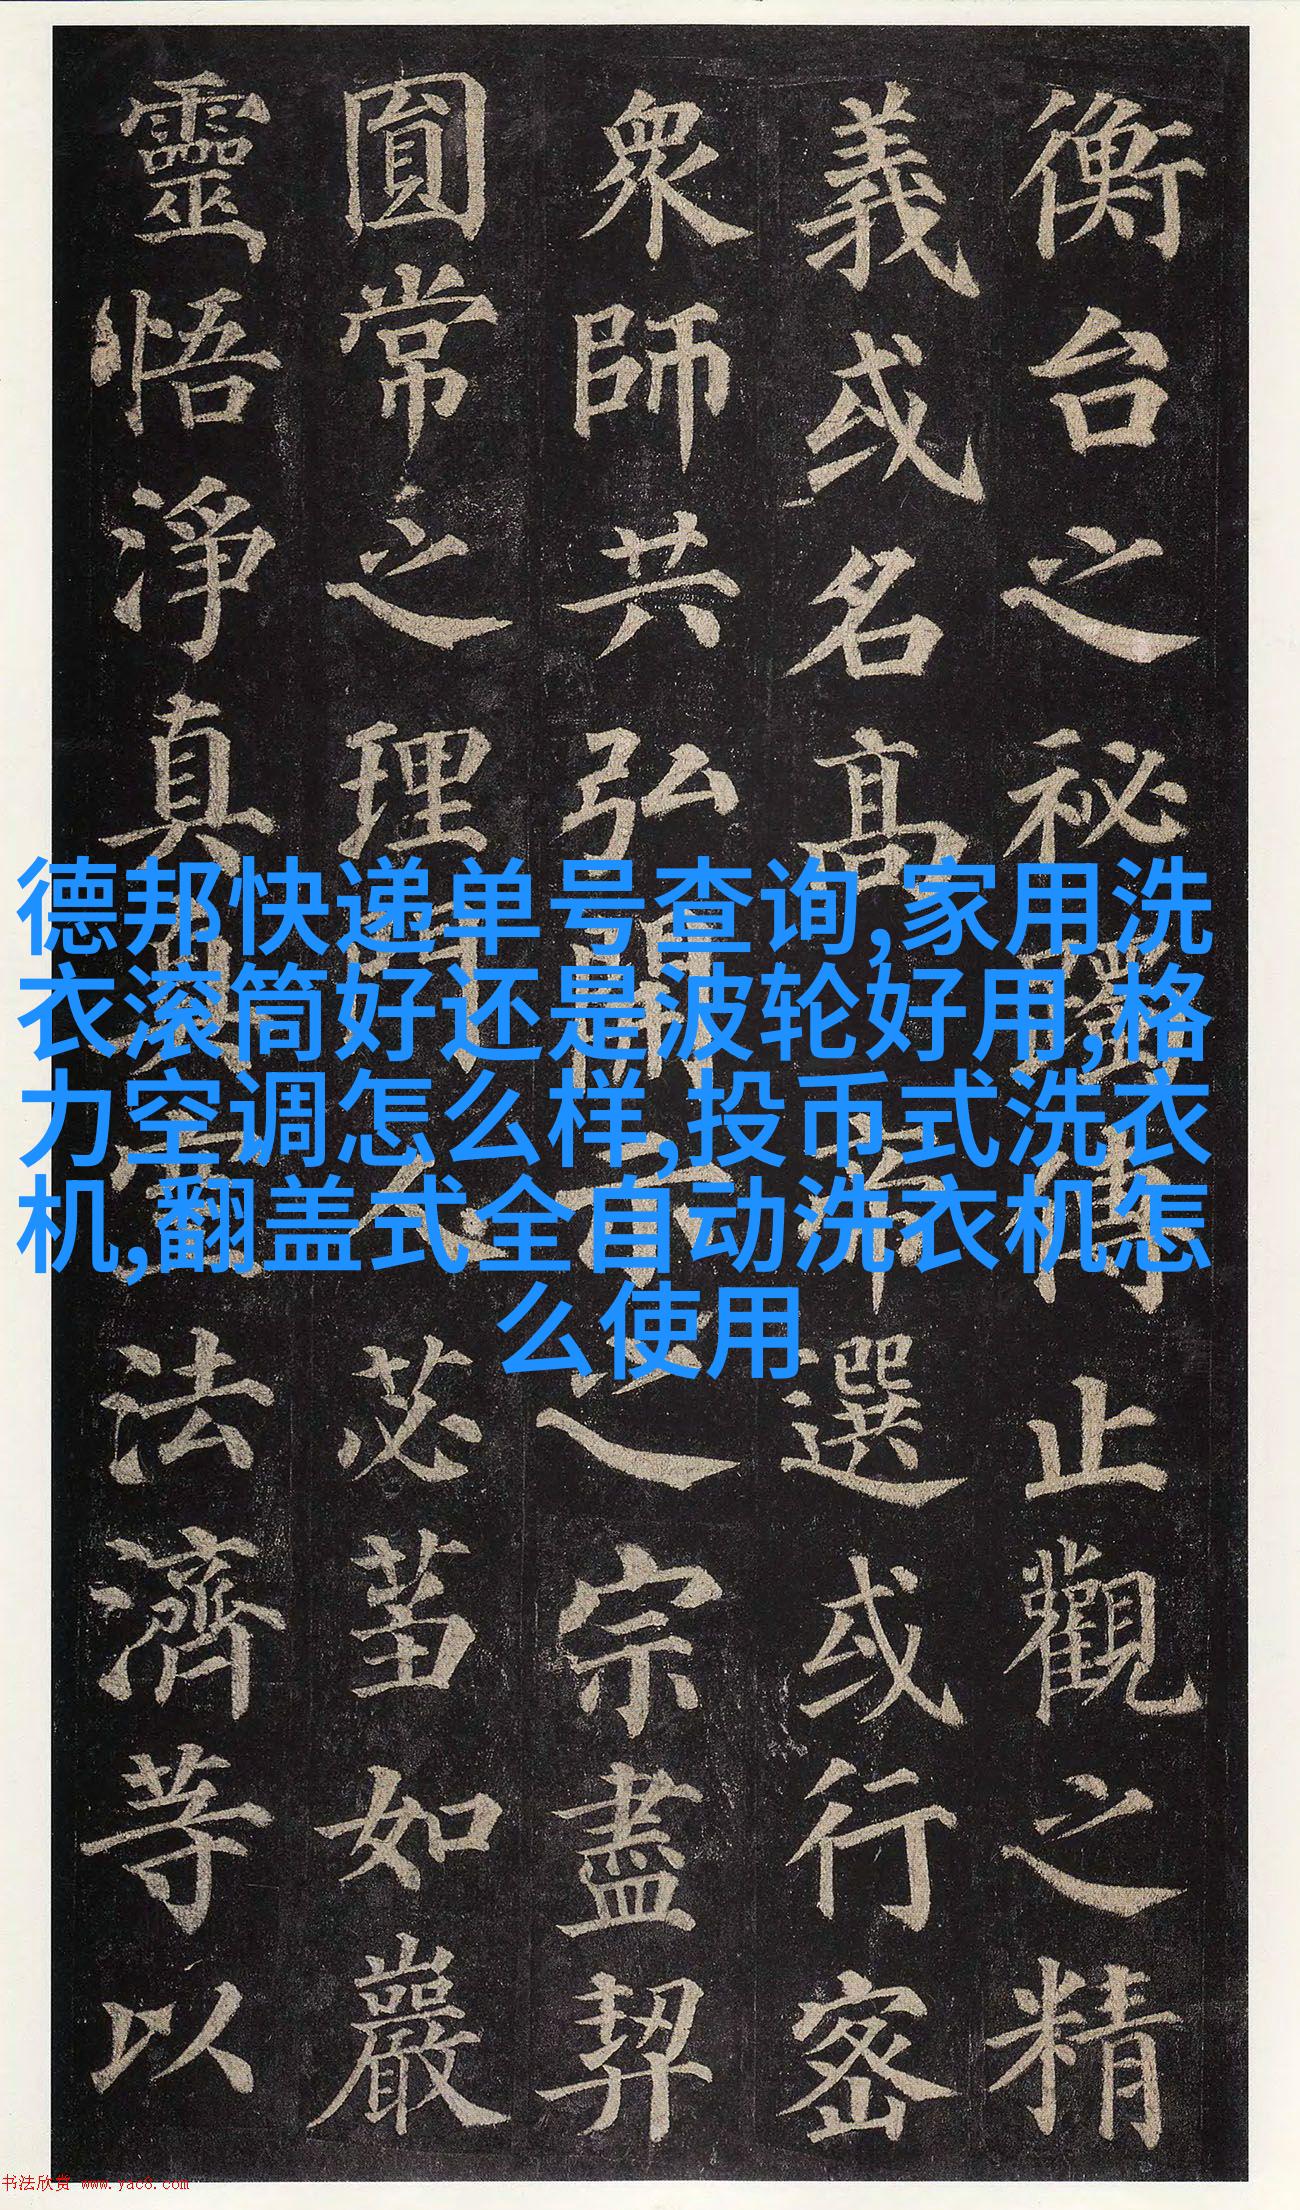 衡台之秘躅傳止觀之精
義或名高帝選或行密
眾師共弘開示之宗盡契
圓常之理門人苾芻如巖
靈悟淨真真空法濟等以
德邦快递单号查询,家用洗
衣滚筒好还是波轮好用,格
力空调怎么样,投币式洗衣
机,翻盖式全自动洗衣机怎
么使用
书法欣赏 www.yac8.com